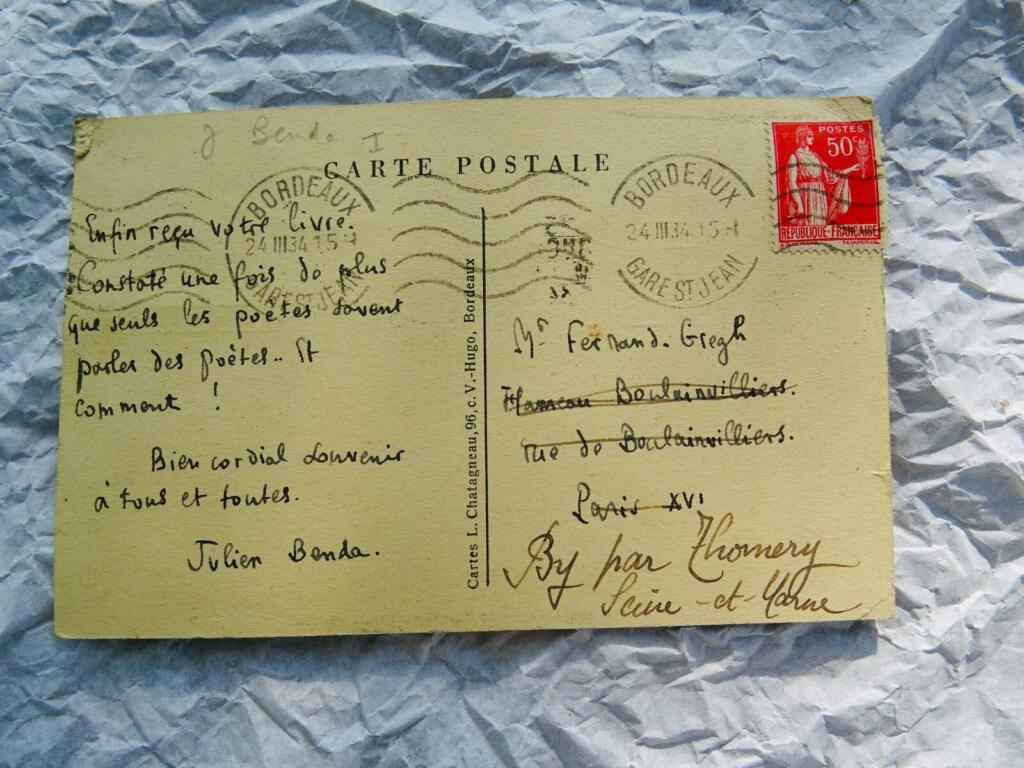 J Benda I
CARTE POSTALE
BORDEAUX
24 III 34 15-H
GARE ST JEAN
BORDEAUX
24 III 34 15-H
GARE ST JEAN
POSTES
50c
REPUBLIQUE-FRANÇAISE
Enfin reçu votre livre.
Constaté une fois de plus
que seuls les poètes savent
parler des poètes.. Et
comment !
Bien cordial souvenir
à tous et toutes.
Julien Benda.
Cartes L. Chatagneau, 96, c. V.-Hugo, Bordeaux
Mr Fernand. Gregh
Hameau Boulainvilliers.
rue de Boulainvilliers.
Paris XVI
By par Thomery
Seine-et-Marne